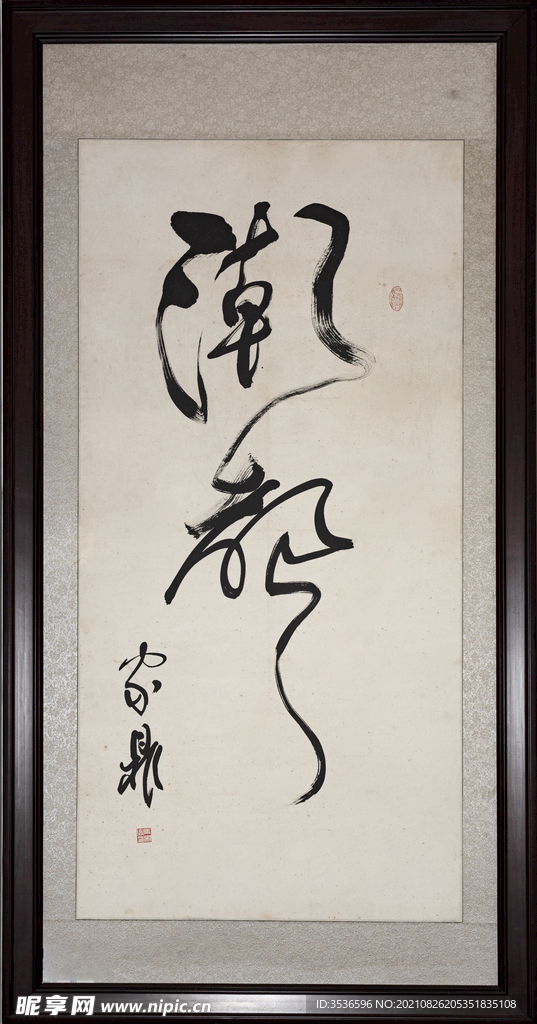 潮聲
家鼎
昵享网 www.nipic.cn
ID:3536596 NO:20210826205351835108